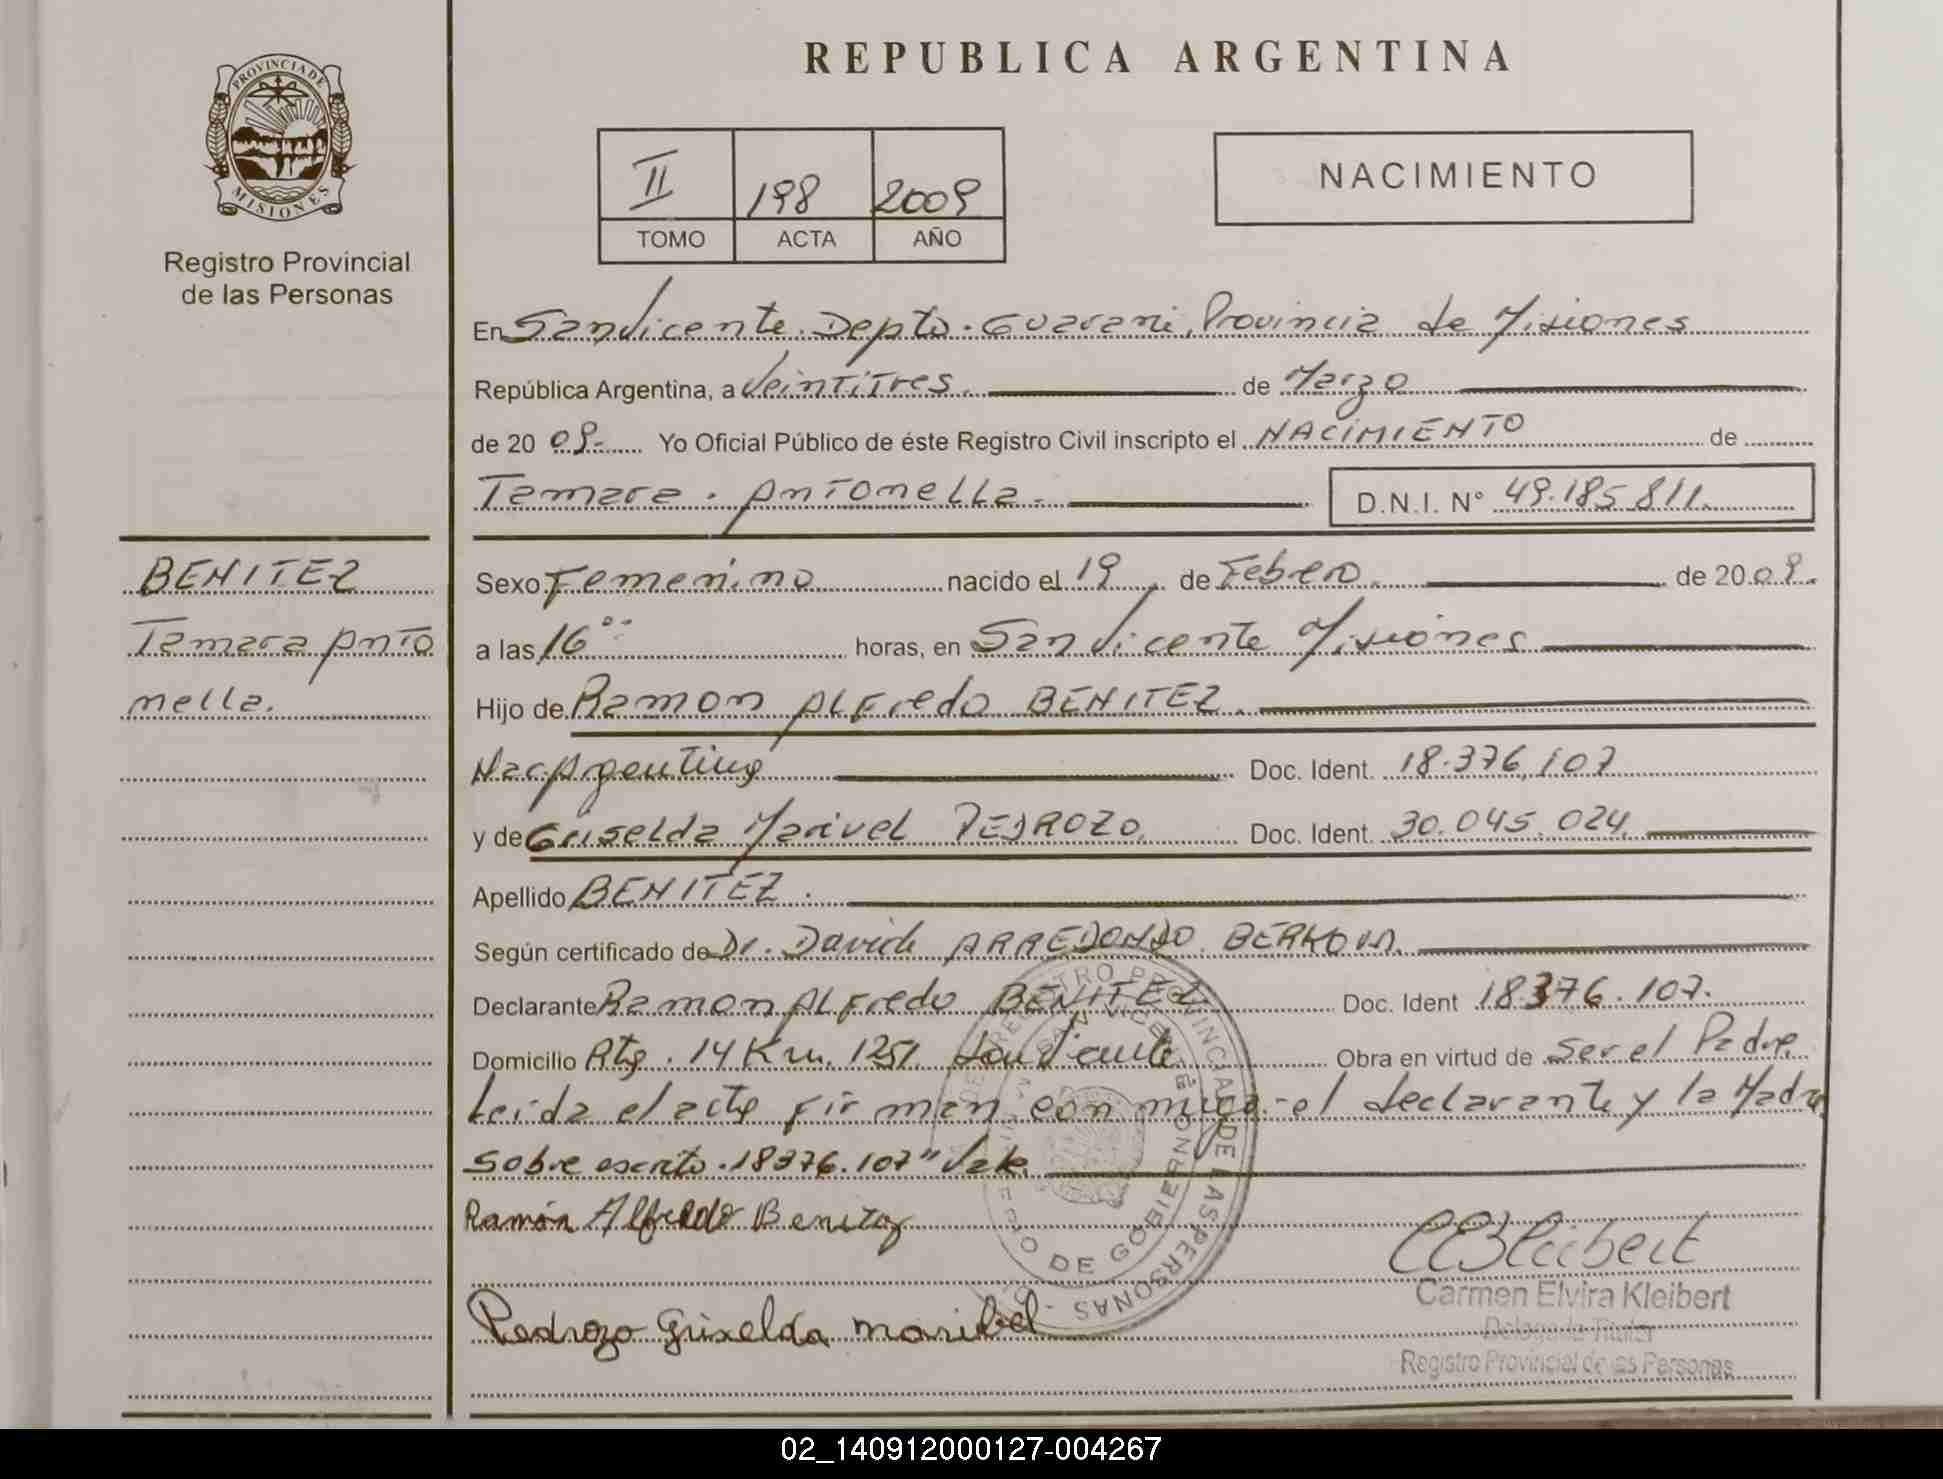 PROVINCIA DE
MISIONES
Registro Provincial
de las Personas
REPUBLICA ARGENTINA
II 198 2009
TOMO ACTA AÑO
NACIMIENTO
En San Vicente. Depto. Guarani, Provincia de Misiones
República Argentina, a Veintitres. de Marzo
de 20 09.- Yo Oficial Público de éste Registro Civil inscripto el NACIMIENTO de
Tamara. Antonella. D.N.I. N° 49.185.811.
BENITEZ
Tamara Anto
nella.
Sexo Femenino nacido el 19 de Febrero. de 20 09.
a las 16°° horas, en San Vicente Misiones
Hijo de Ramon ALFredo BENITEZ.
Nac. Argentina Doc. Ident. 18.376.107
y de Griselda Marivel PEDROZO. Doc. Ident. 30.045.024
Apellido BENITEZ.
Según certificado de Dr. David ARREDONDO
Declarante Ramon ALFredo BENITEZ Doc. Ident 18.376.107.
Domicilio Rta. 14 Km. 1251. San Vicente Obra en virtud de Ser el Padre.
Leida el acta Firman con migo el declarante y la Madre
Sobre escrito. 18376.107" Vale.
Ramón Alfredo Benitez
Pedrozo Griselda maribel
CEKleibert
Carmen Elvira Kleibert
Delegada Titular
Registro Provincial de las Personas
REGISTRO PROVINCIAL DE LAS PERSONAS -
SAN VICENTE
DE GOBIERNO
02_140912000127-004267